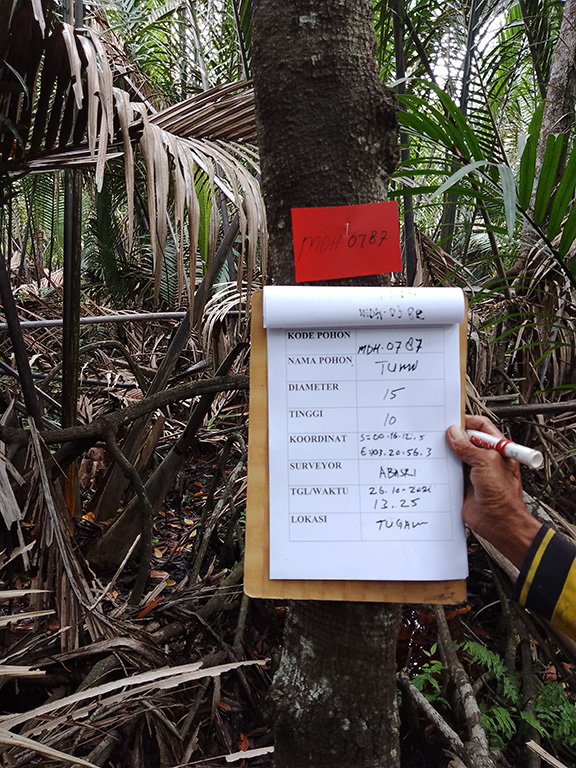 MDH 0787
KODE POHON MDH-0787
NAMA POHON TUMU
DIAMETER 15
TINGGI 10
KOORDINAT S=00.16.12.5
E=103.20.56.3
SURVEYOR ABASRI
TGL/WAKTU 26.10-2021
13.25
LOKASI